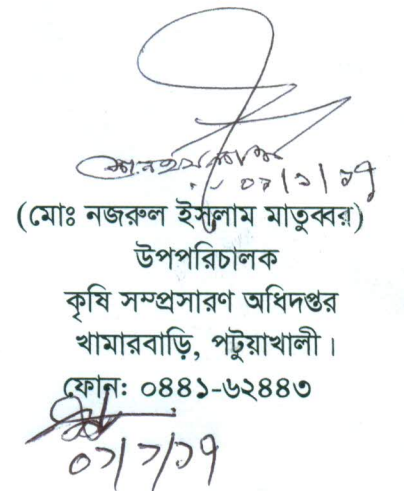 ০১/১/১৭
(মোঃ নজরুল ইসলাম মাতুব্বর)
উপপরিচালক
কৃষি সম্প্রসারণ অধিদপ্তর
খামারবাড়ি, পটুয়াখালী।
ফোন: ০৪৪১-৬২৪৪৩
০১/১/১৭